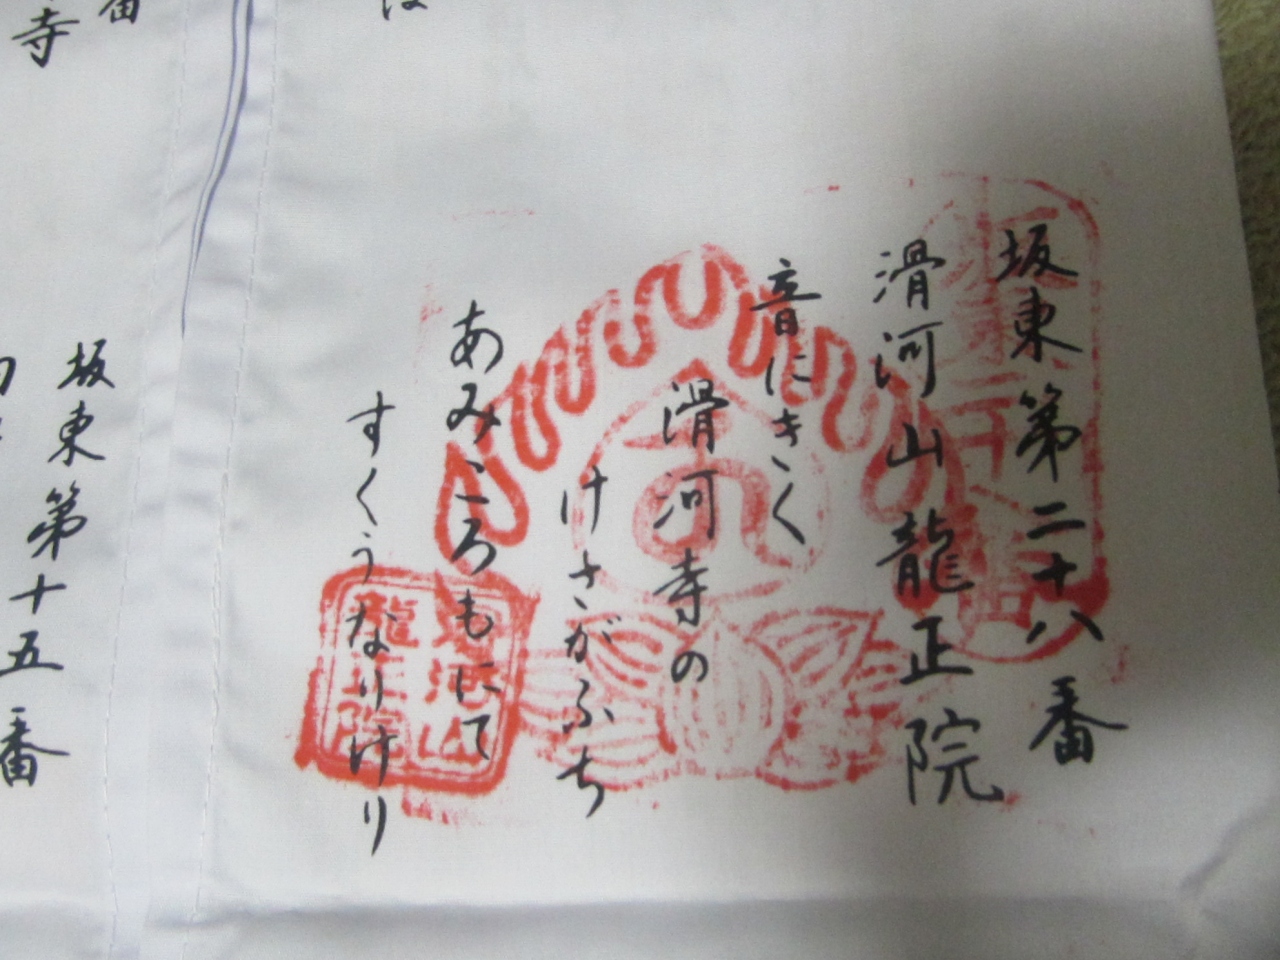 坂東第二十八番
滑河山龍正院
音にきく
滑河寺の
けさがふち
あみころもにて
すくうなりけり
滑河山
龍正院
坂東第十五番
番
寺
は